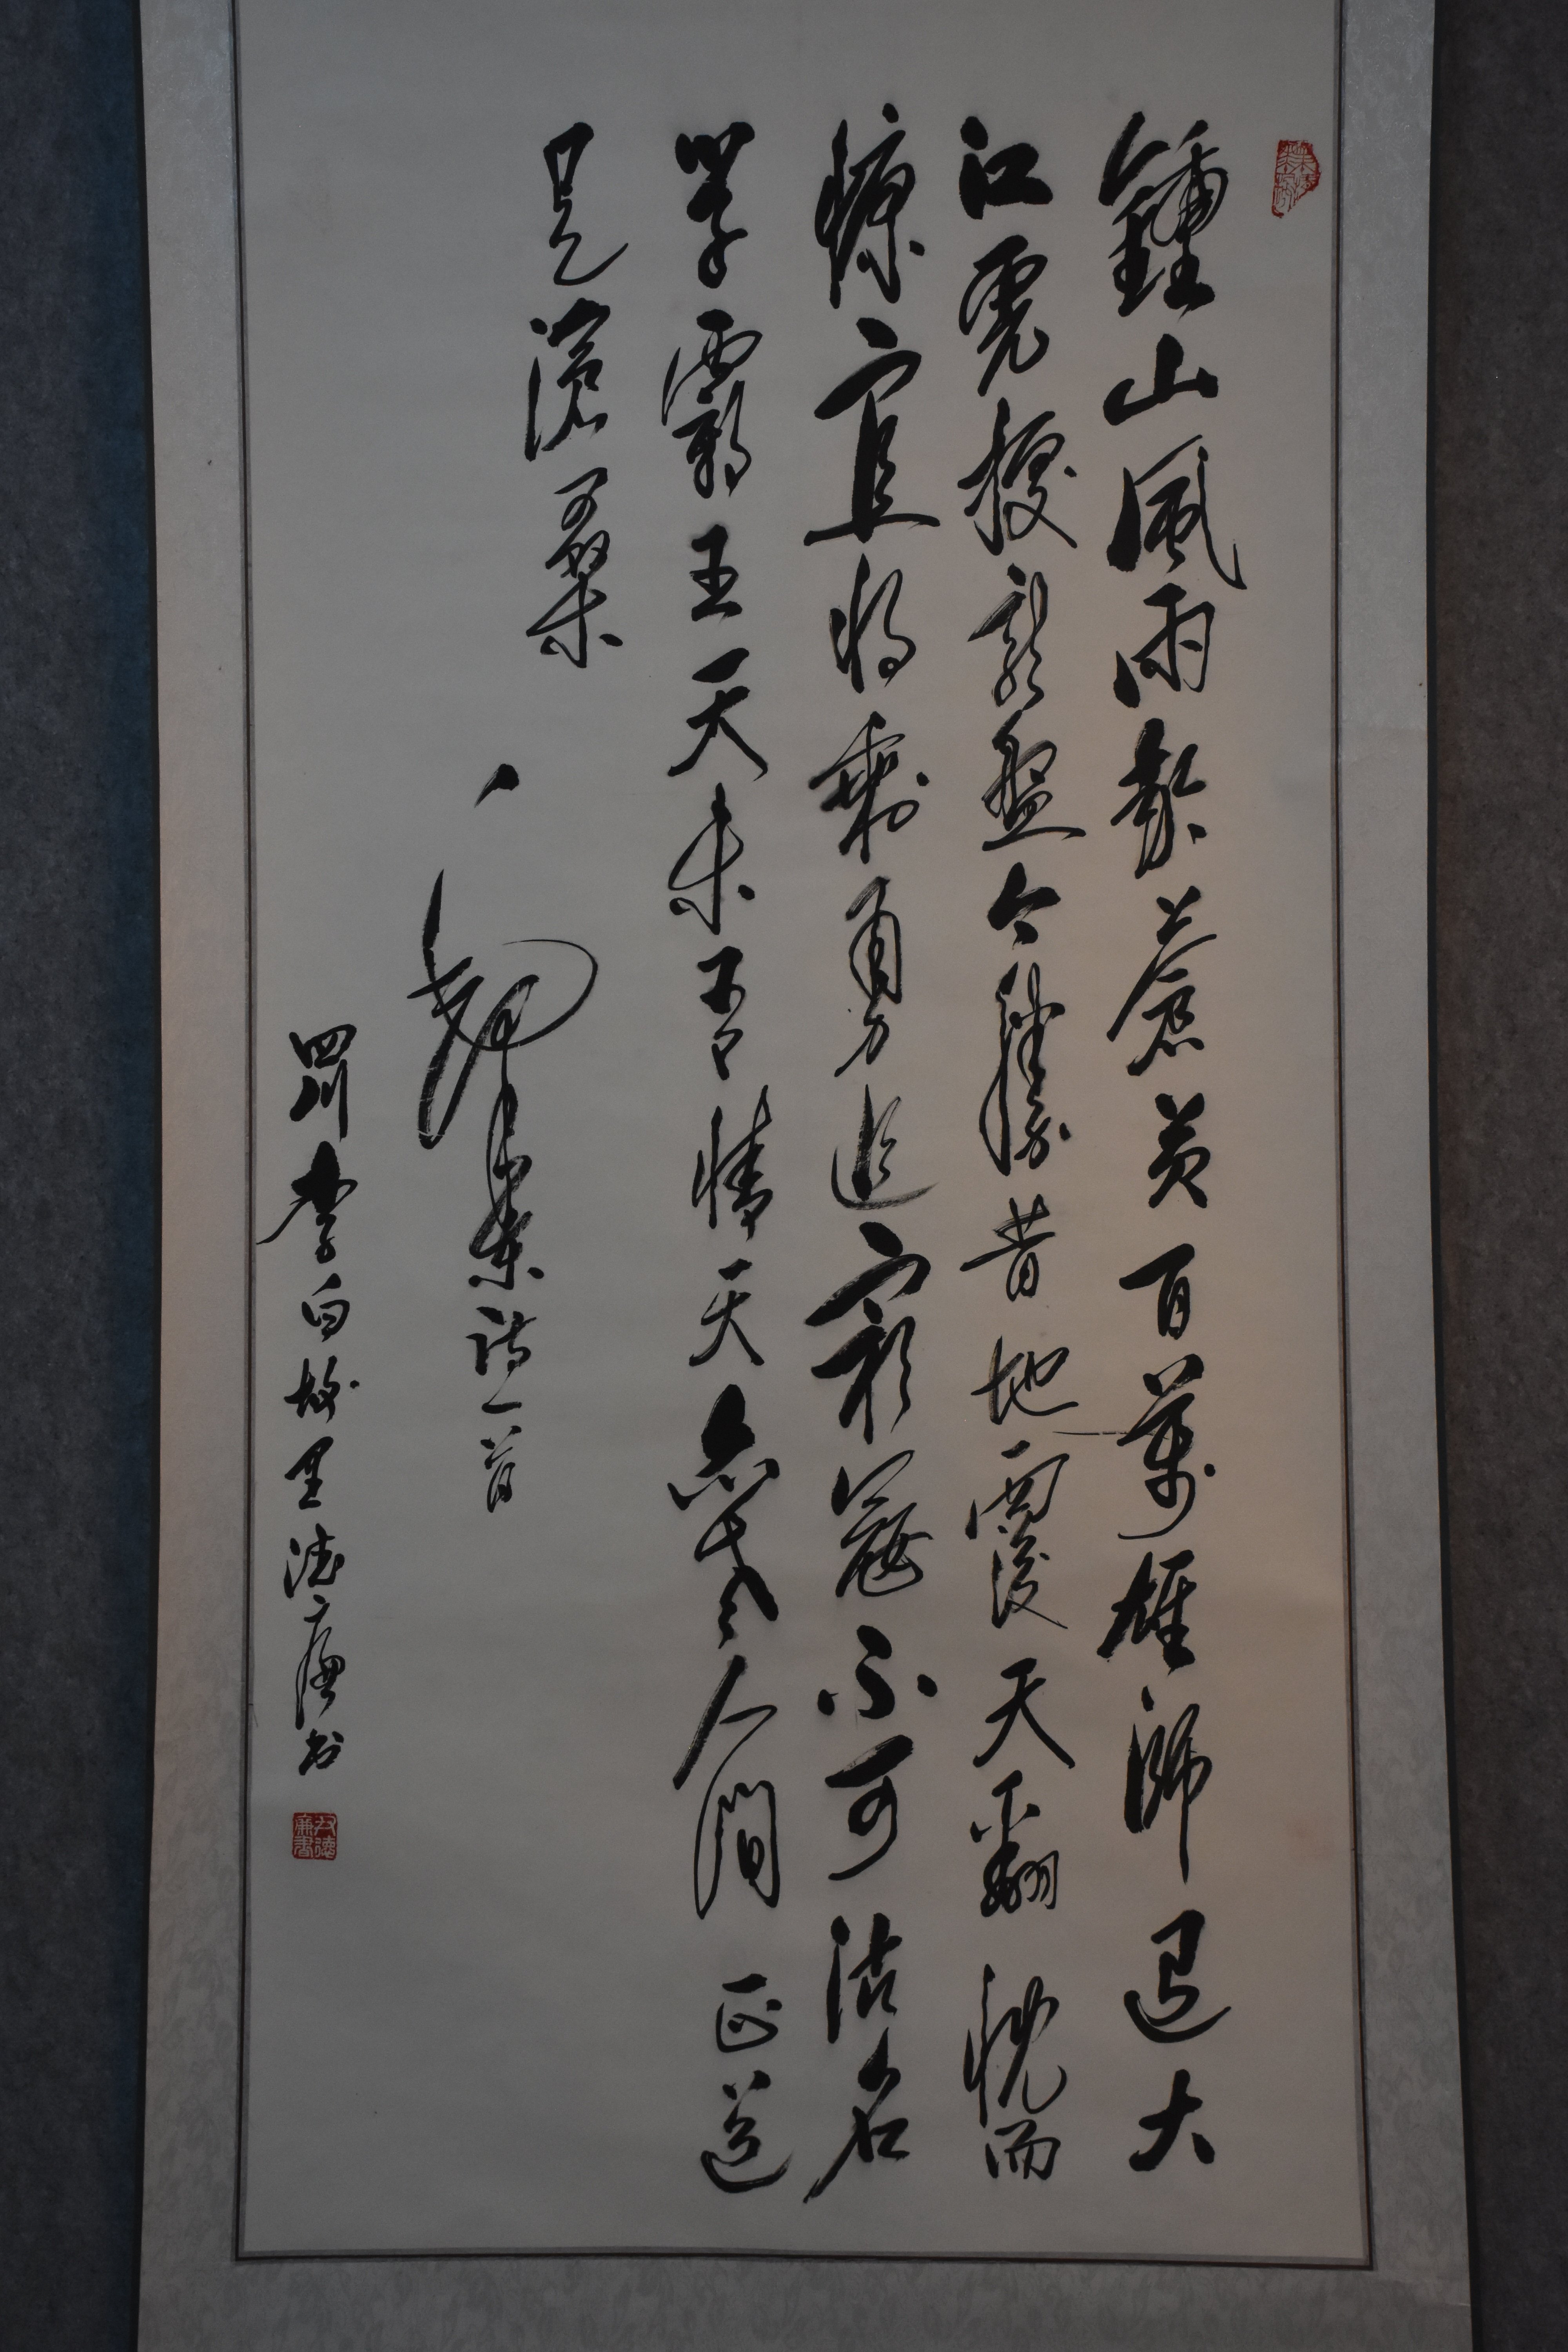 鍾山風雨蒼黃百萬雄師過大
江虎據龍盤今勝昔地覆天翻慨而
慷宜將剩勇追窮寇不可沽名
學霸王天若有情天亦老人間正道
是滄桑
毛澤東詩一首
四川李白故里德廉書
德廉書